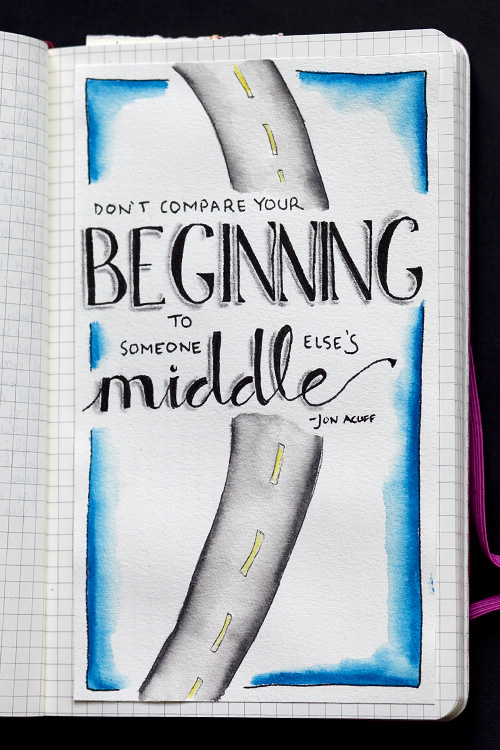 DON'T COMPARE YOUR
BEGINNING
TO
SOMEONE ELSE'S
middle
-JON ACUFF